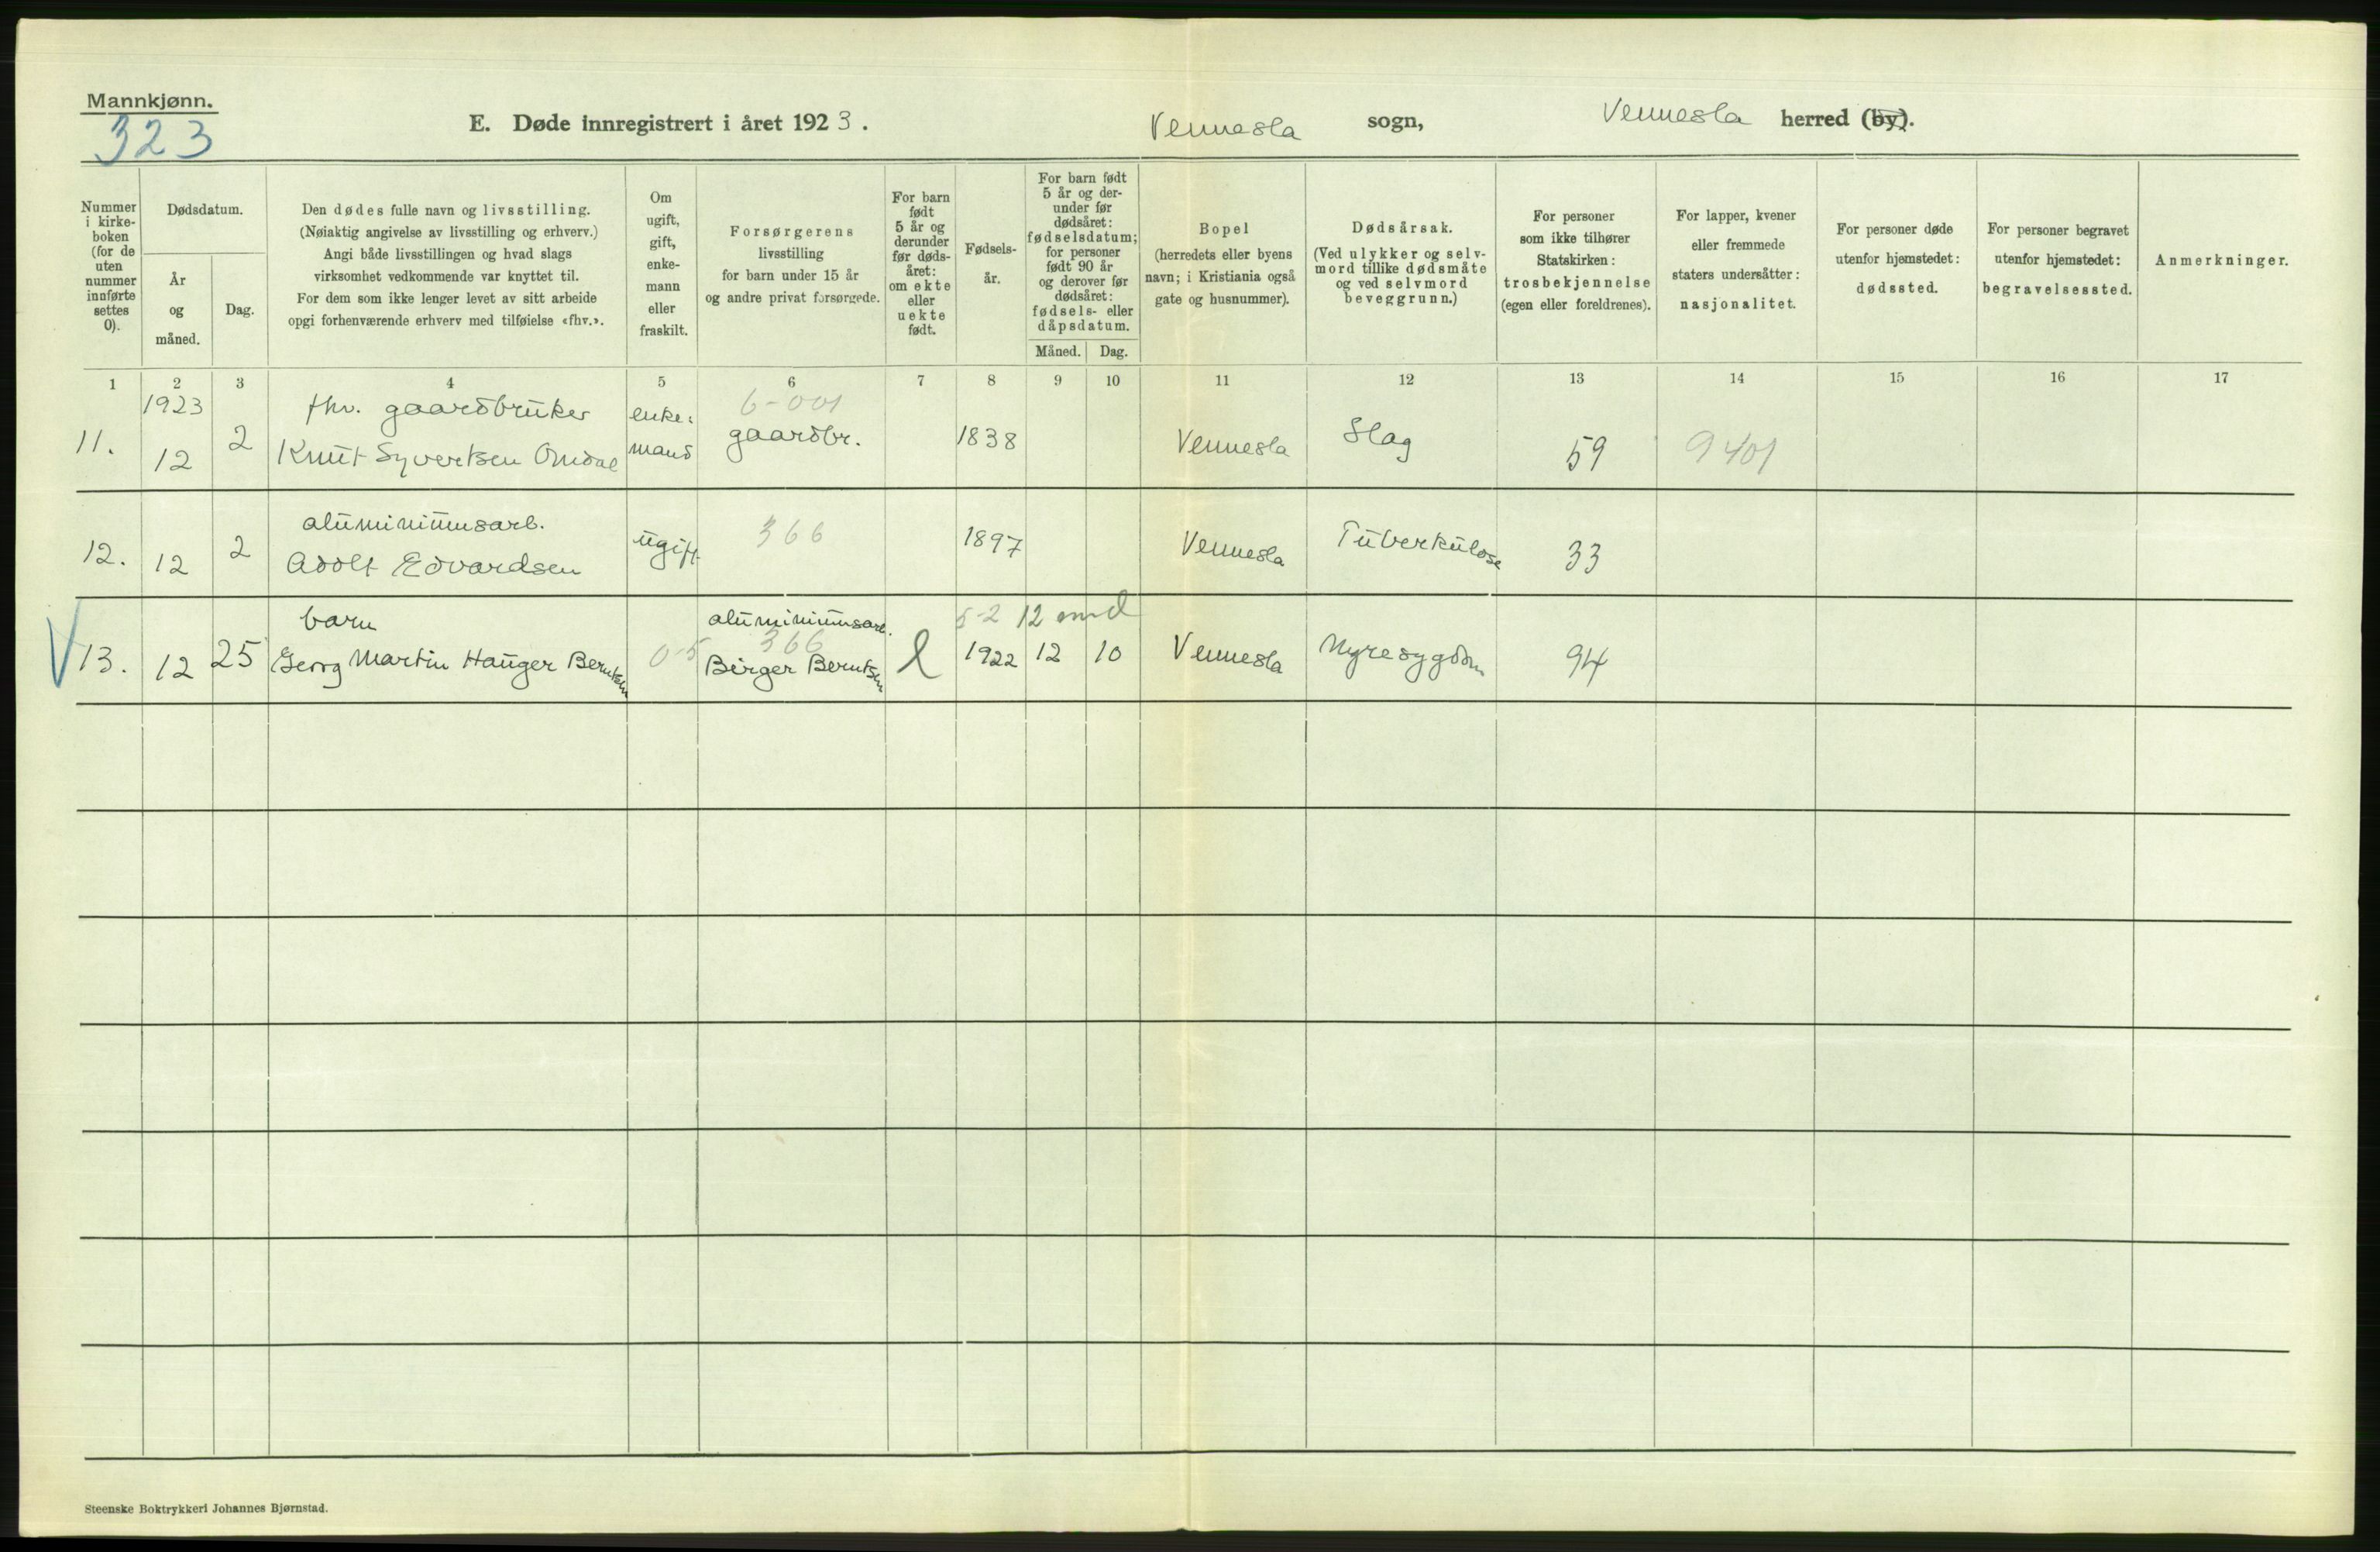 Mannkjønn.
323
E. Døde innregistrert i året 1923.
Vennesla sogn,
Vennesla herred (by).
Nummer
i kirke-
boken
(for de
uten
nummer
innførte
settes
0).
Dødsdatum.
År
og
måned.
Dag.
Den dødes fulle navn og livsstilling.
(Nøiaktig angivelse av livsstilling og erhverv.)
Angi både livsstillingen og hvad slags
virksomhet vedkommende var knyttet til.
For dem som ikke lenger levet av sitt arbeide
opgi forhenværende erhverv med tilføielse «fhv.».
Om
ugift,
gift,
enke-
mann
eller
fraskilt.
Forsørgerens
livsstilling
for barn under 15 år
og andre privat forsørgede.
For barn
født
5 år og
derunder
før døds-
året:
om ekte
eller
uekte
født.
Fødsels-
år.
For barn født
5 år og der-
under før
dødsåret:
fødselsdatum;
for personer
født 90 år
og derover før
dødsåret:
fødsels- eller
dåpsdatum.
Måned.
Dag.
Bopel
(herredets eller byens
navn; i Kristiania også
gate og husnummer).
Dødsårsak.
(Ved ulykker og selv-
mord tillike dødsmåte
og ved selvmord
beveggrunn.)
For personer
som ikke tilhører
Statskirken:
trosbekjennelse
(egen eller foreldrenes).
For lapper, kvener
eller fremmede
staters undersåtter:
nasjonalitet.
For personer døde
utenfor hjemstedet:
dødssted.
For personer begravet
utenfor hjemstedet:
begravelsessted.
Anmerkninger.
1 2 3 4 5 6 7 8 9 10 11 12 13 14 15 16 17
1923 fhv. gaardbruker enke- 6-001
11. 12 2 Knut Syvertsen Omdal mand gaardbr. 1838 Vennesla Slag 59 9401
aluminiumsarb.
12. 12 2 Adolf Edvardsen ugift 366 1897 Vennesla Tuberkulose 33
barn aluminiumsarb. 5-2 12 md
366
V 13. 12 25 Georg Martin Hauger Berntsen 0-5 Birger Berntsen 1922 12 10 Vennesla Nyresygdom 94
Steenske Boktrykkeri Johannes Bjørnstad.